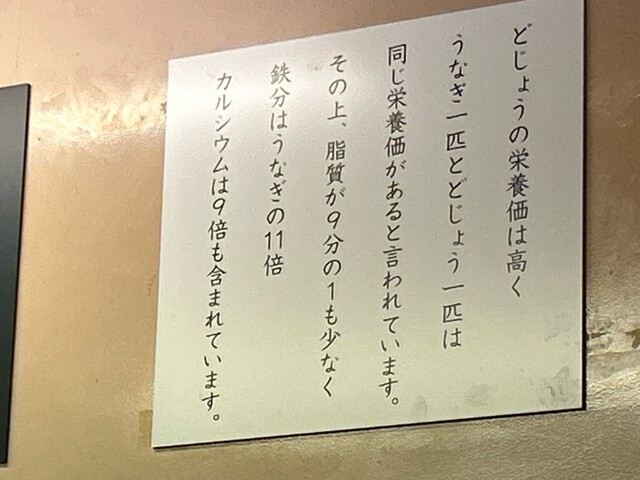 どじょうの栄養価は高く
うなぎ一匹とどじょう一匹は
同じ栄養価があると言われています。
その上、脂質が9分の1も少なく
鉄分はうなぎの11倍
カルシウムは9倍も含まれています。